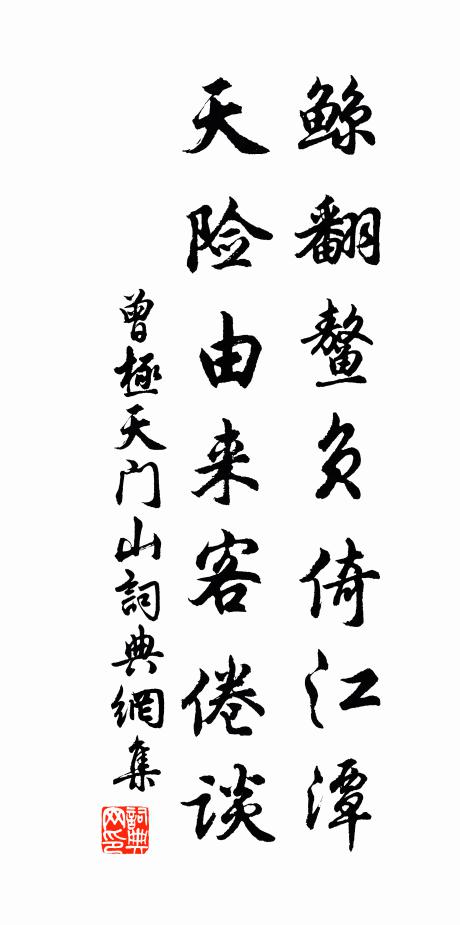 鲸翻鳌负倚江潭
天险由来客倦谈
曾極天门山詞典網集
詞典网印